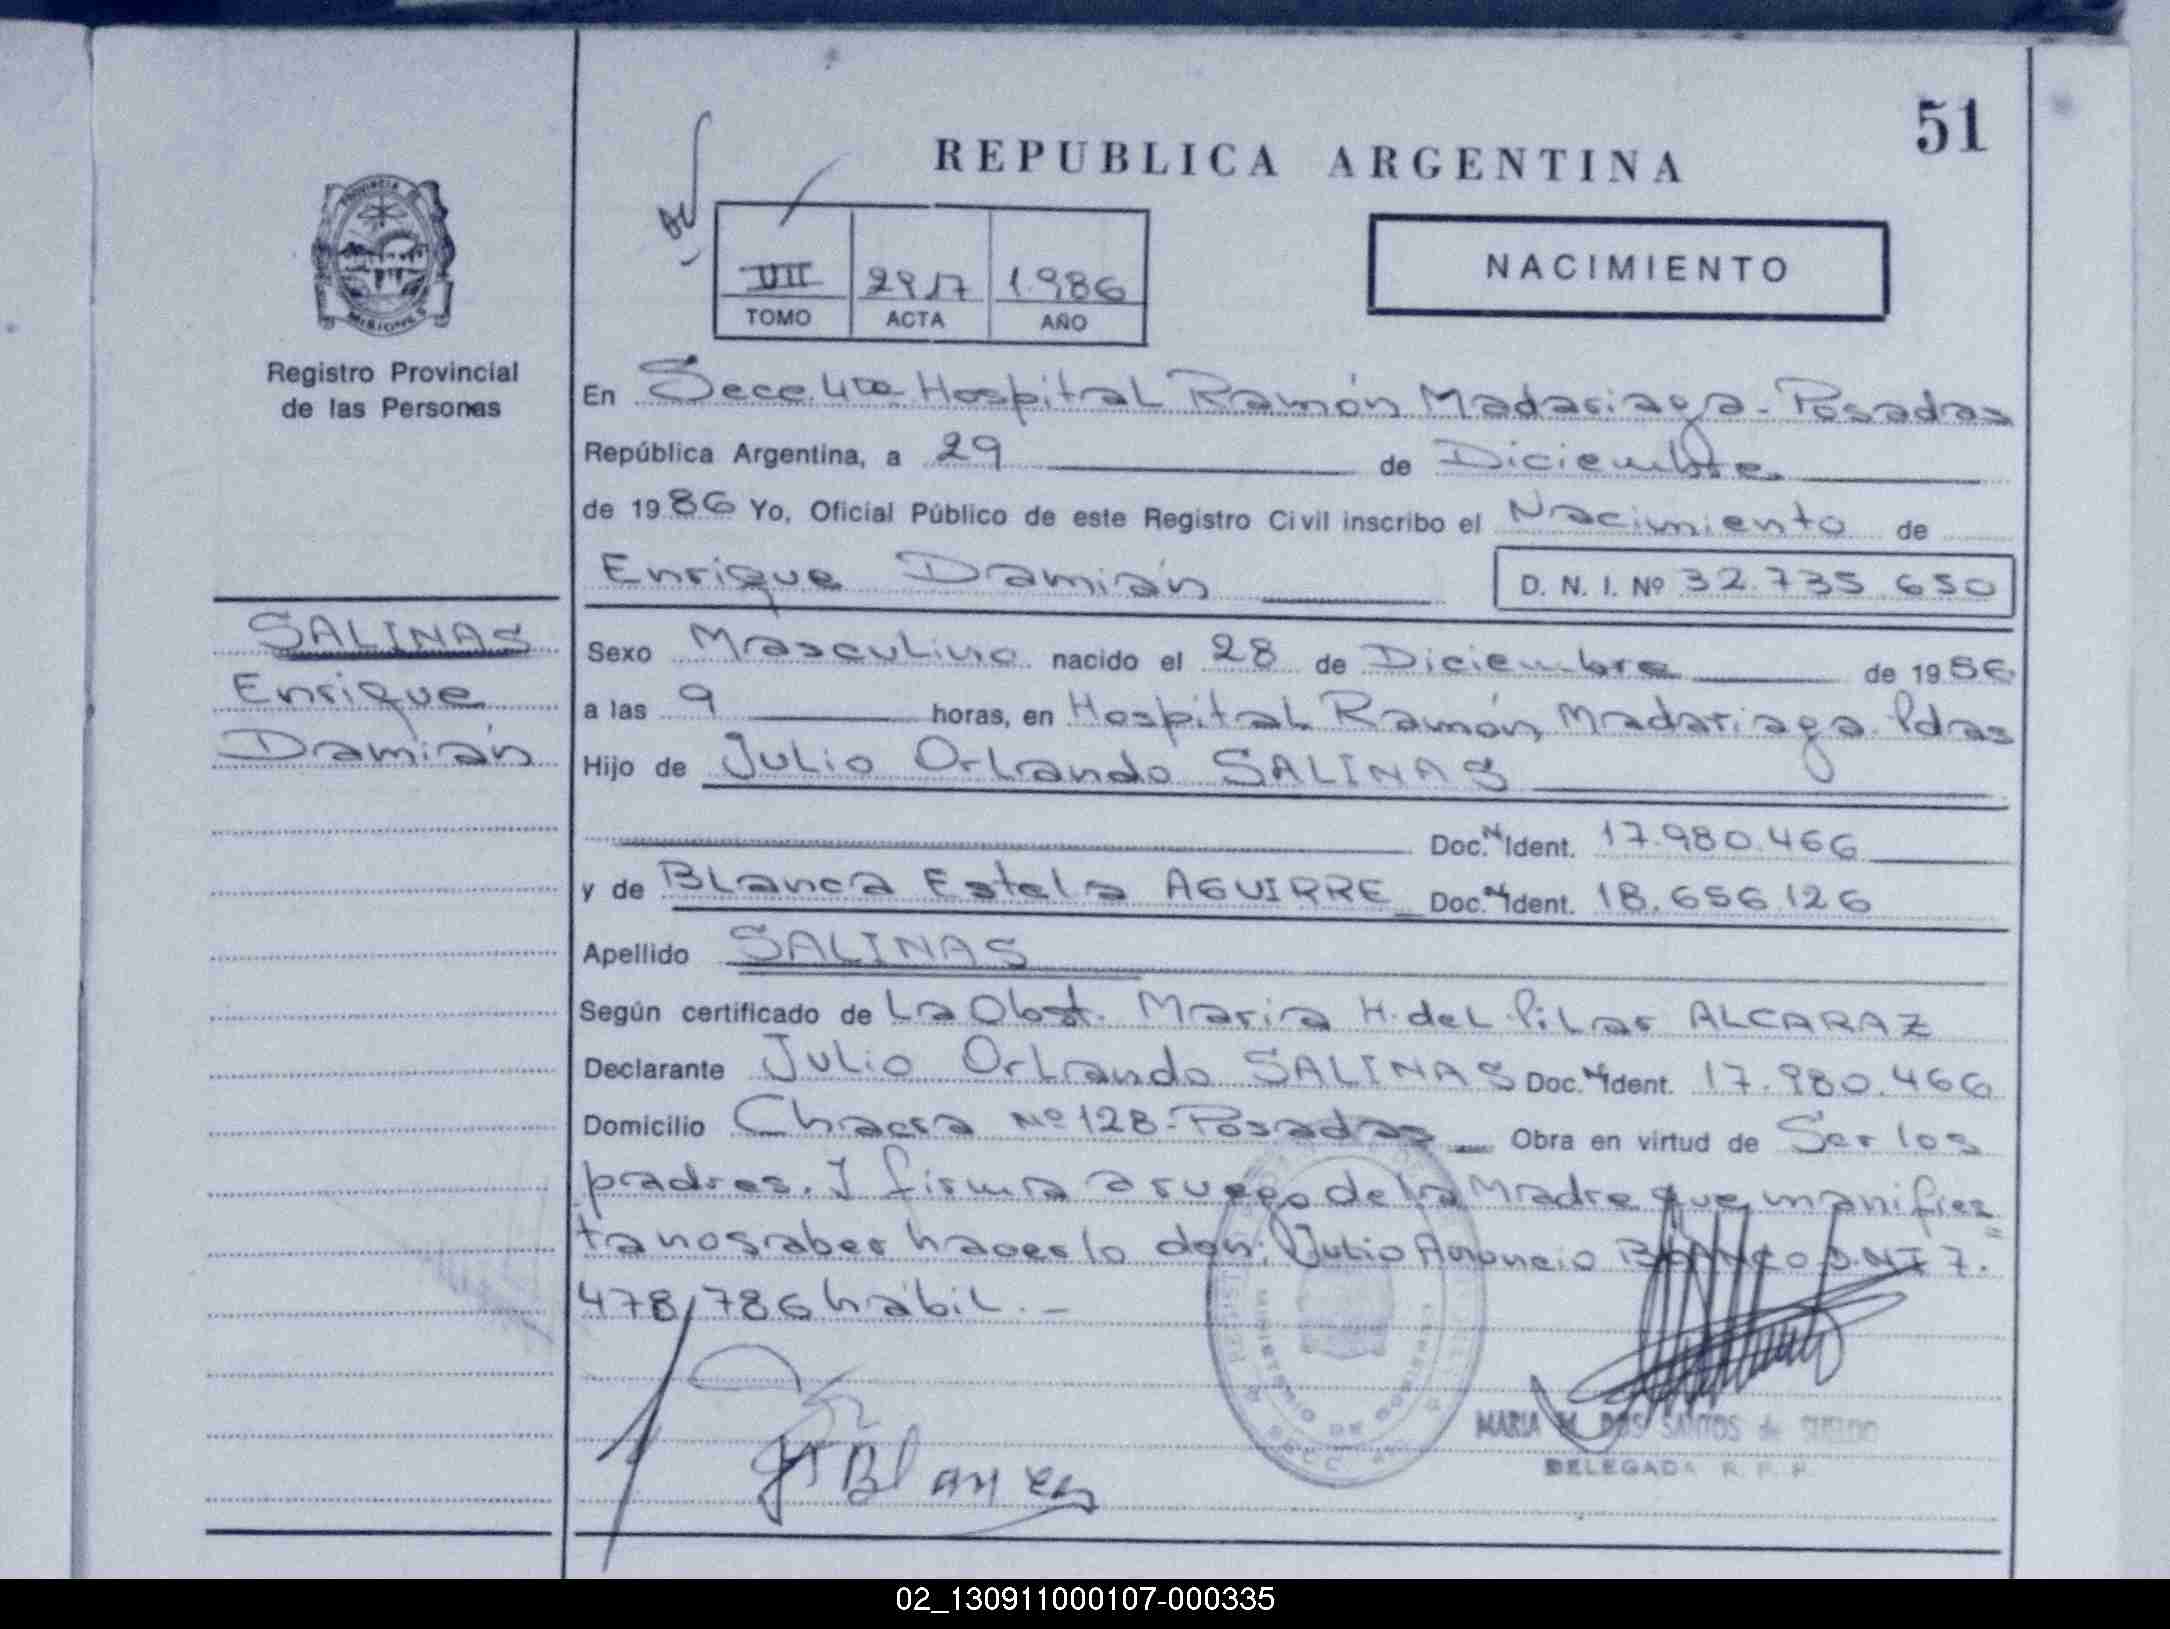 51
REPUBLICA ARGENTINA
PROVINCIA
MISIONES
Registro Provincial
de las Personas
VII 2917 1.986
TOMO ACTA AÑO
NACIMIENTO
En Secc. 4ta Hospital Ramón Madariaga - Posadas
República Argentina, a 29 de Diciembre
de 1986 Yo, Oficial Público de este Registro Civil inscribo el Nacimiento de
Enrique Damián D. N. I. Nº 32.735.650
SALINAS
Enrique
Damián
Sexo Masculino nacido el 28 de Diciembre de 1986
a las 9 horas, en Hospital Ramón Madariaga. Pdas
Hijo de Julio Orlando SALINAS
Doc. N Ident. 17.980.466
y de Blanca Estela AGUIRRE Doc. N Ident. 18.656.126
Apellido SALINAS
Según certificado de La Obst. Maria H. del Pilar ALCARAZ
Declarante Julio Orlando SALINAS Doc. N Ident. 17.980.466
Domicilio Chacra Nº 128 - Posadas Obra en virtud de Ser los
padres. Y firma a ruego de la Madre que manifies=
ta no saber hacerlo don: Julio BLANCO D.N.I 7.
478.786 hábil. -
MINISTERIO DE GOBIERNO
Blanco
MARIA M. DOS SANTOS de SUELDO
DELEGADA R. P. P.
02_130911000107-000335